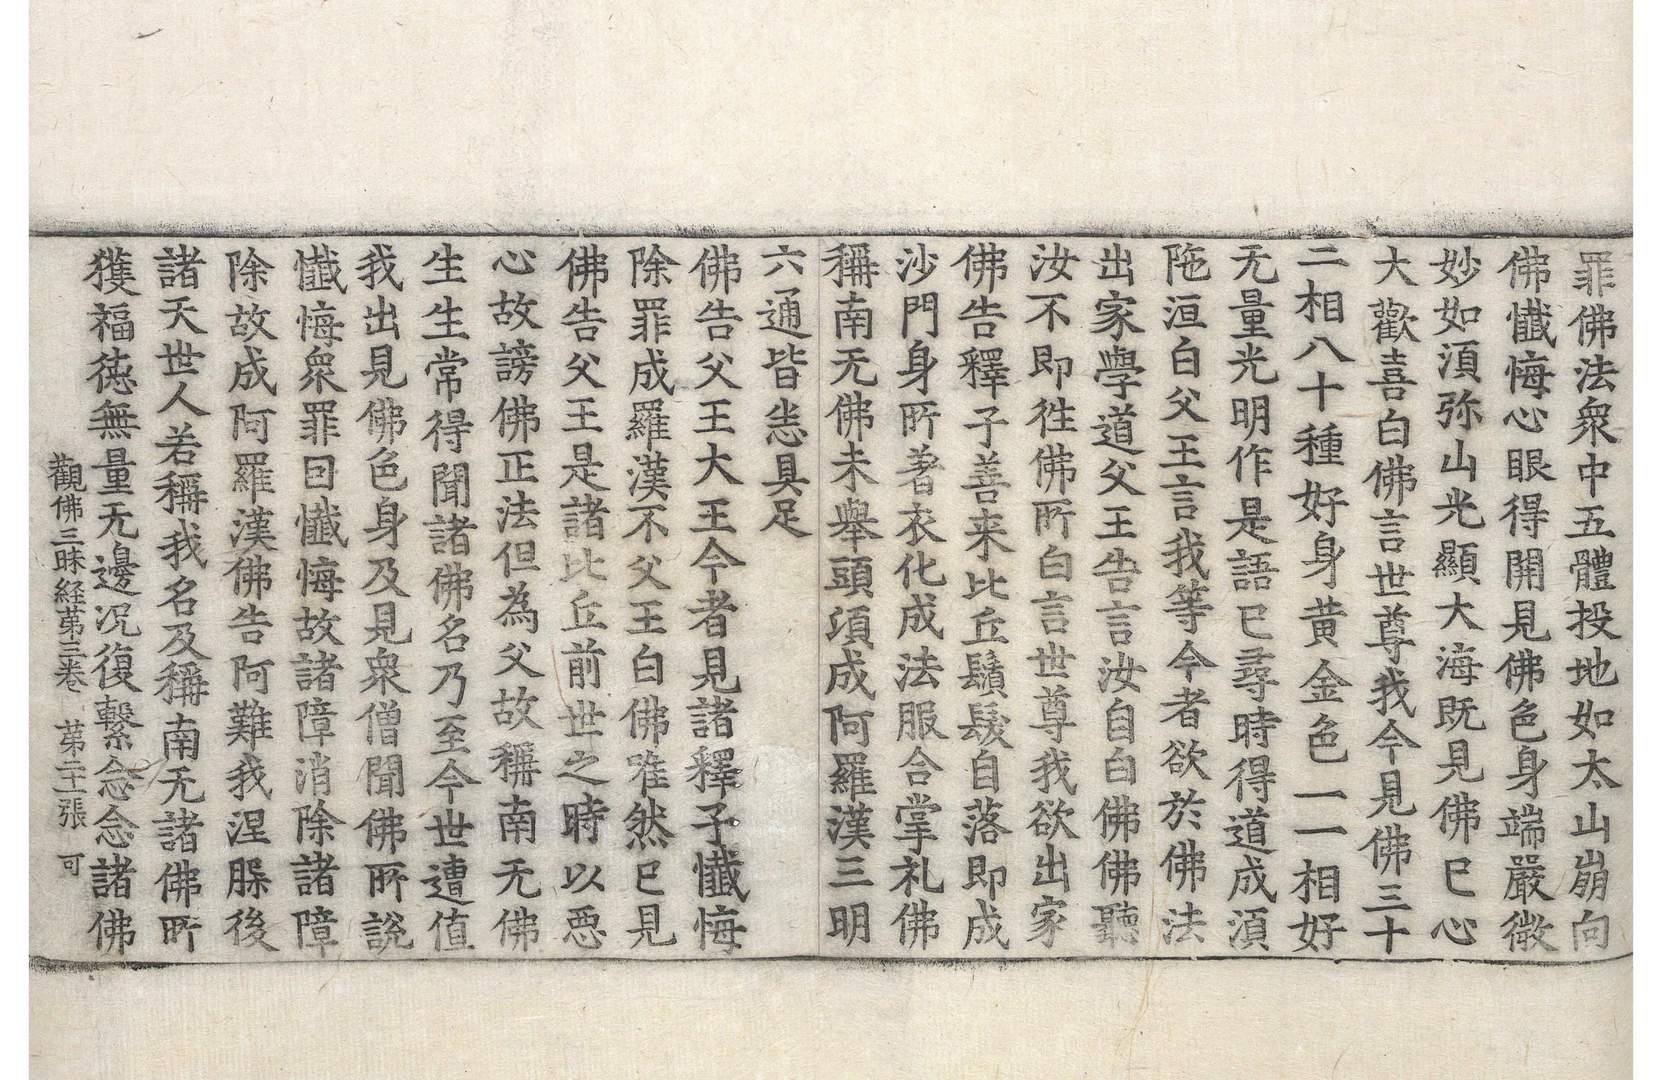 罪佛法衆中五體投地如太山崩向
佛懺悔心眼得開見佛色身端嚴微
妙如湏弥山光顯大海既見佛已心
大歡喜白佛言世尊我今見佛三十
二相八十種好身黄金色一一相好
无量光明作是語已尋時得道成湏
陁洹白父王言我等今者欲於佛法
出家學道父王告言汝自白佛佛聽
汝不即徃佛所白言世尊我欲出家
佛告釋子善来比丘鬚髮自落即成
沙門身所著衣化成法服合掌礼佛
稱南无佛未舉頭項成阿羅漢三明
六通皆悉具足
佛告父王大王今者見諸釋子懺悔
除罪成羅漢不父王白佛唯然已見
佛告父王是諸比丘前世之時以惡
心故謗佛正法但為父故稱南无佛
生生常得聞諸佛名乃至今世遭值
我出見佛色身及見衆僧聞佛所說
懺悔衆罪因懺悔故諸障消除諸障
除故成阿羅漢佛告阿難我涅槃後
諸天世人若稱我名及稱南无諸佛所
獲福徳無量无邊况復繫念念諸佛
觀佛三昧経苐三卷 苐二十一張 可